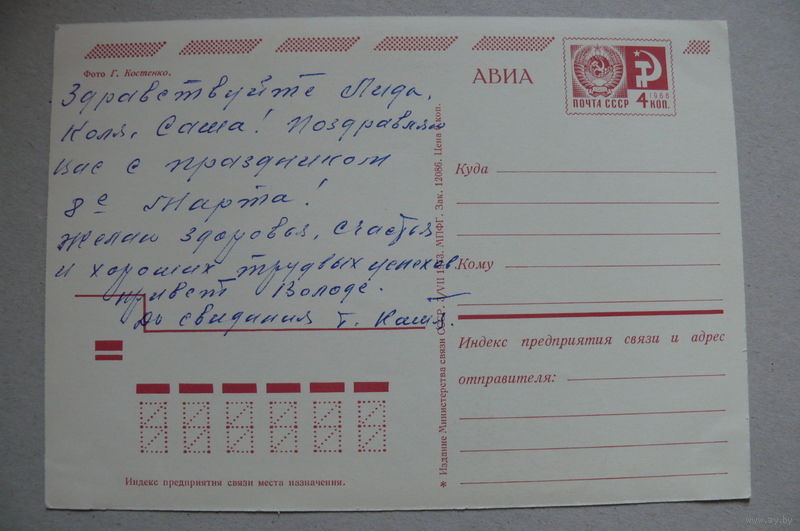 Фото Г. Костенко.
Здравствуйте Лида,
Коля, Саша! Поздравляю
вас с праздником
8е Марта!
Желаю здоровья, счастья
и хороших трудвых успехов.
привет Володе.
До свидания т. Катя.
Индекс предприятия связи места назначения.
* Издание Министерства связи СССР. /VII 1973. МПФГ. Зак. 12086. Цена 6 коп.
АВИА
ПОЧТА СССР 4 КОП.
1966
Куда
Кому
Индекс предприятия связи и адрес
отправителя:
www.ay.by